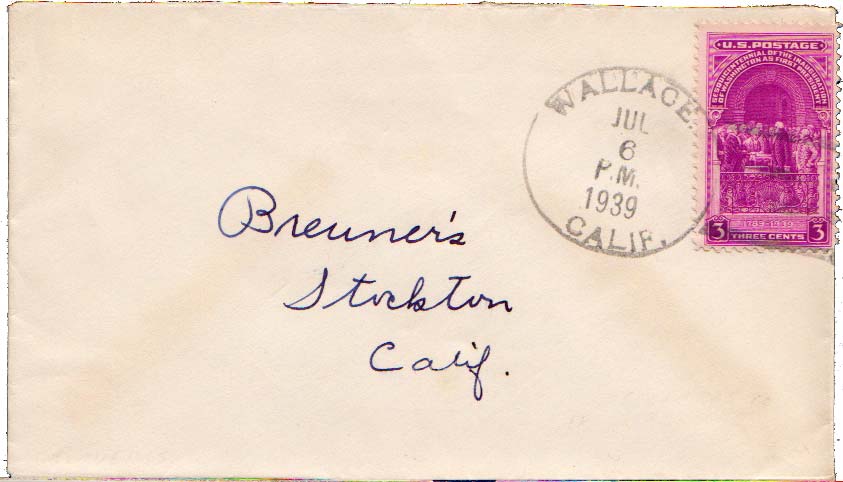 WALLACE.
JUL
6
P.M.
1939
CALIF.
U.S. POSTAGE
SESQUICENTENNIAL OF THE INAUGURATION
OF WASHINGTON AS FIRST PRESIDENT
1789-1939
3 THREE CENTS 3
Breuner's
Stockton
Calif.